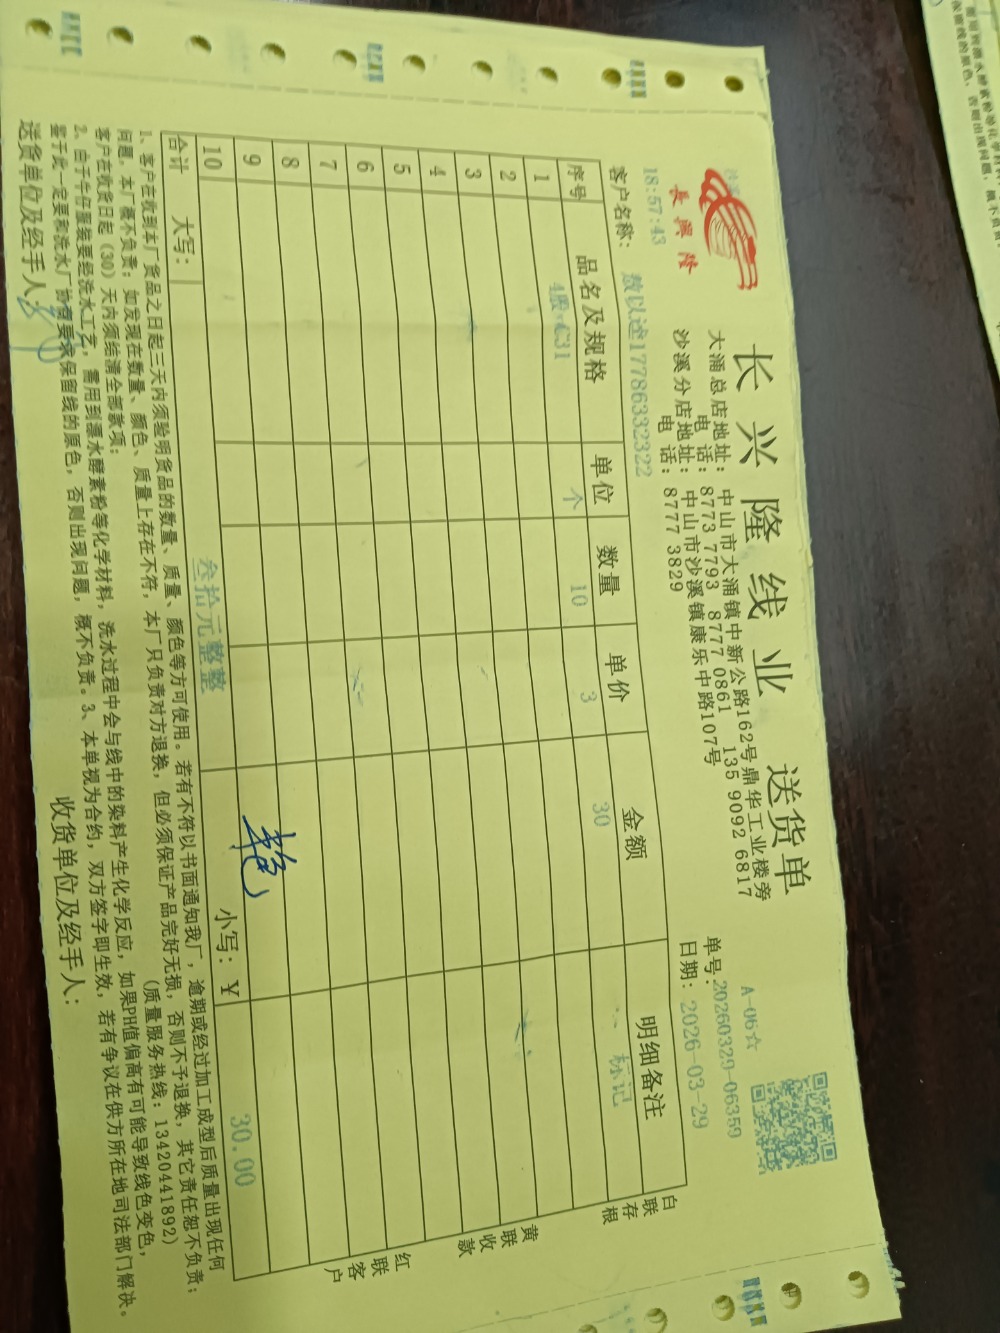 长兴隆线业 送货单
長興隆
大涌总店地址：中山市大涌镇中新公路162号鼎华工业楼旁
电 话：8773 7793 8777 0861 135 9092 6817
沙溪分店地址：中山市沙溪镇康乐中路107号
电 话：8777 3829
A-06☆
单号：20260329-06359
日期：2026-03-29
18:57:43
客户名称：敖以述17786332322
序号 品名及规格 单位 数量 单价 金额 明细备注
1 4股:C31 个 10 3 30 标记
2
3
4
5
6
7
8
9
10
合计 大写： 叁拾元整整 小写：¥ 30.00
白联存根
黄联收款
红联客户
1、客户在收到本厂货品之日起三天内须验明货品的数量、质量、颜色等方可使用。若有不符以书面通知我厂，逾期或经过加工成型后质量出现任何
问题，本厂概不负责；如发现在数量、颜色、质量上存在不符，本厂只负责对方退换，但必须保证产品完好无损，否则不予退换，其它责任恕不负责；
客户在收货日起（30）天内须结清全部款项； (质量服务热线：13420441892)
2、由于牛仔服装要经洗水工艺，需用到漂水酵素粉等化学材料，洗水过程中会与线中的染料产生化学反应，如果PH值偏高有可能导致线色变色，
鉴于此一定要和洗水厂协商要求保留线的原色，否则出现问题，概不负责。3、本单视为合约，双方签字即生效，若有争议在供方所在地司法部门解决。
送货单位及经手人： 收货单位及经手人：